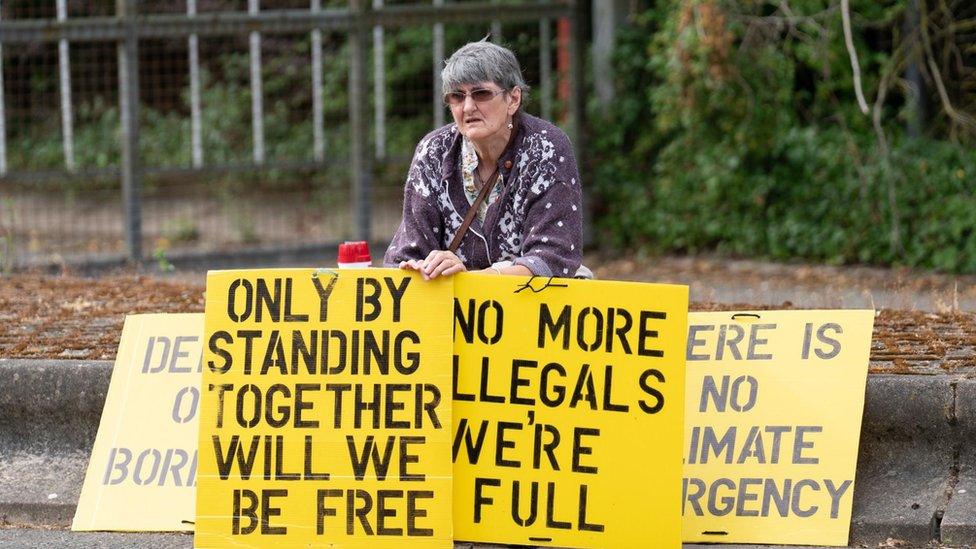 DE
O
BOR
ONLY BY
STANDING
TOGETHER
WILL WE
BE FREE
NO MORE
ILLEGALS
WE'RE
FULL
ERE IS
NO
LIMATE
RGENCY